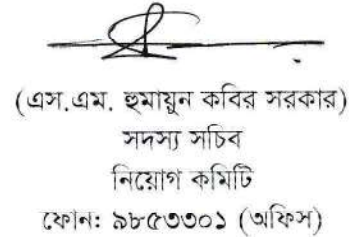 (এস.এম. হুমায়ুন কবির সরকার)
সদস্য সচিব
নিয়োগ কমিটি
ফোন: ৯৮৫৩৩০১ (অফিস)